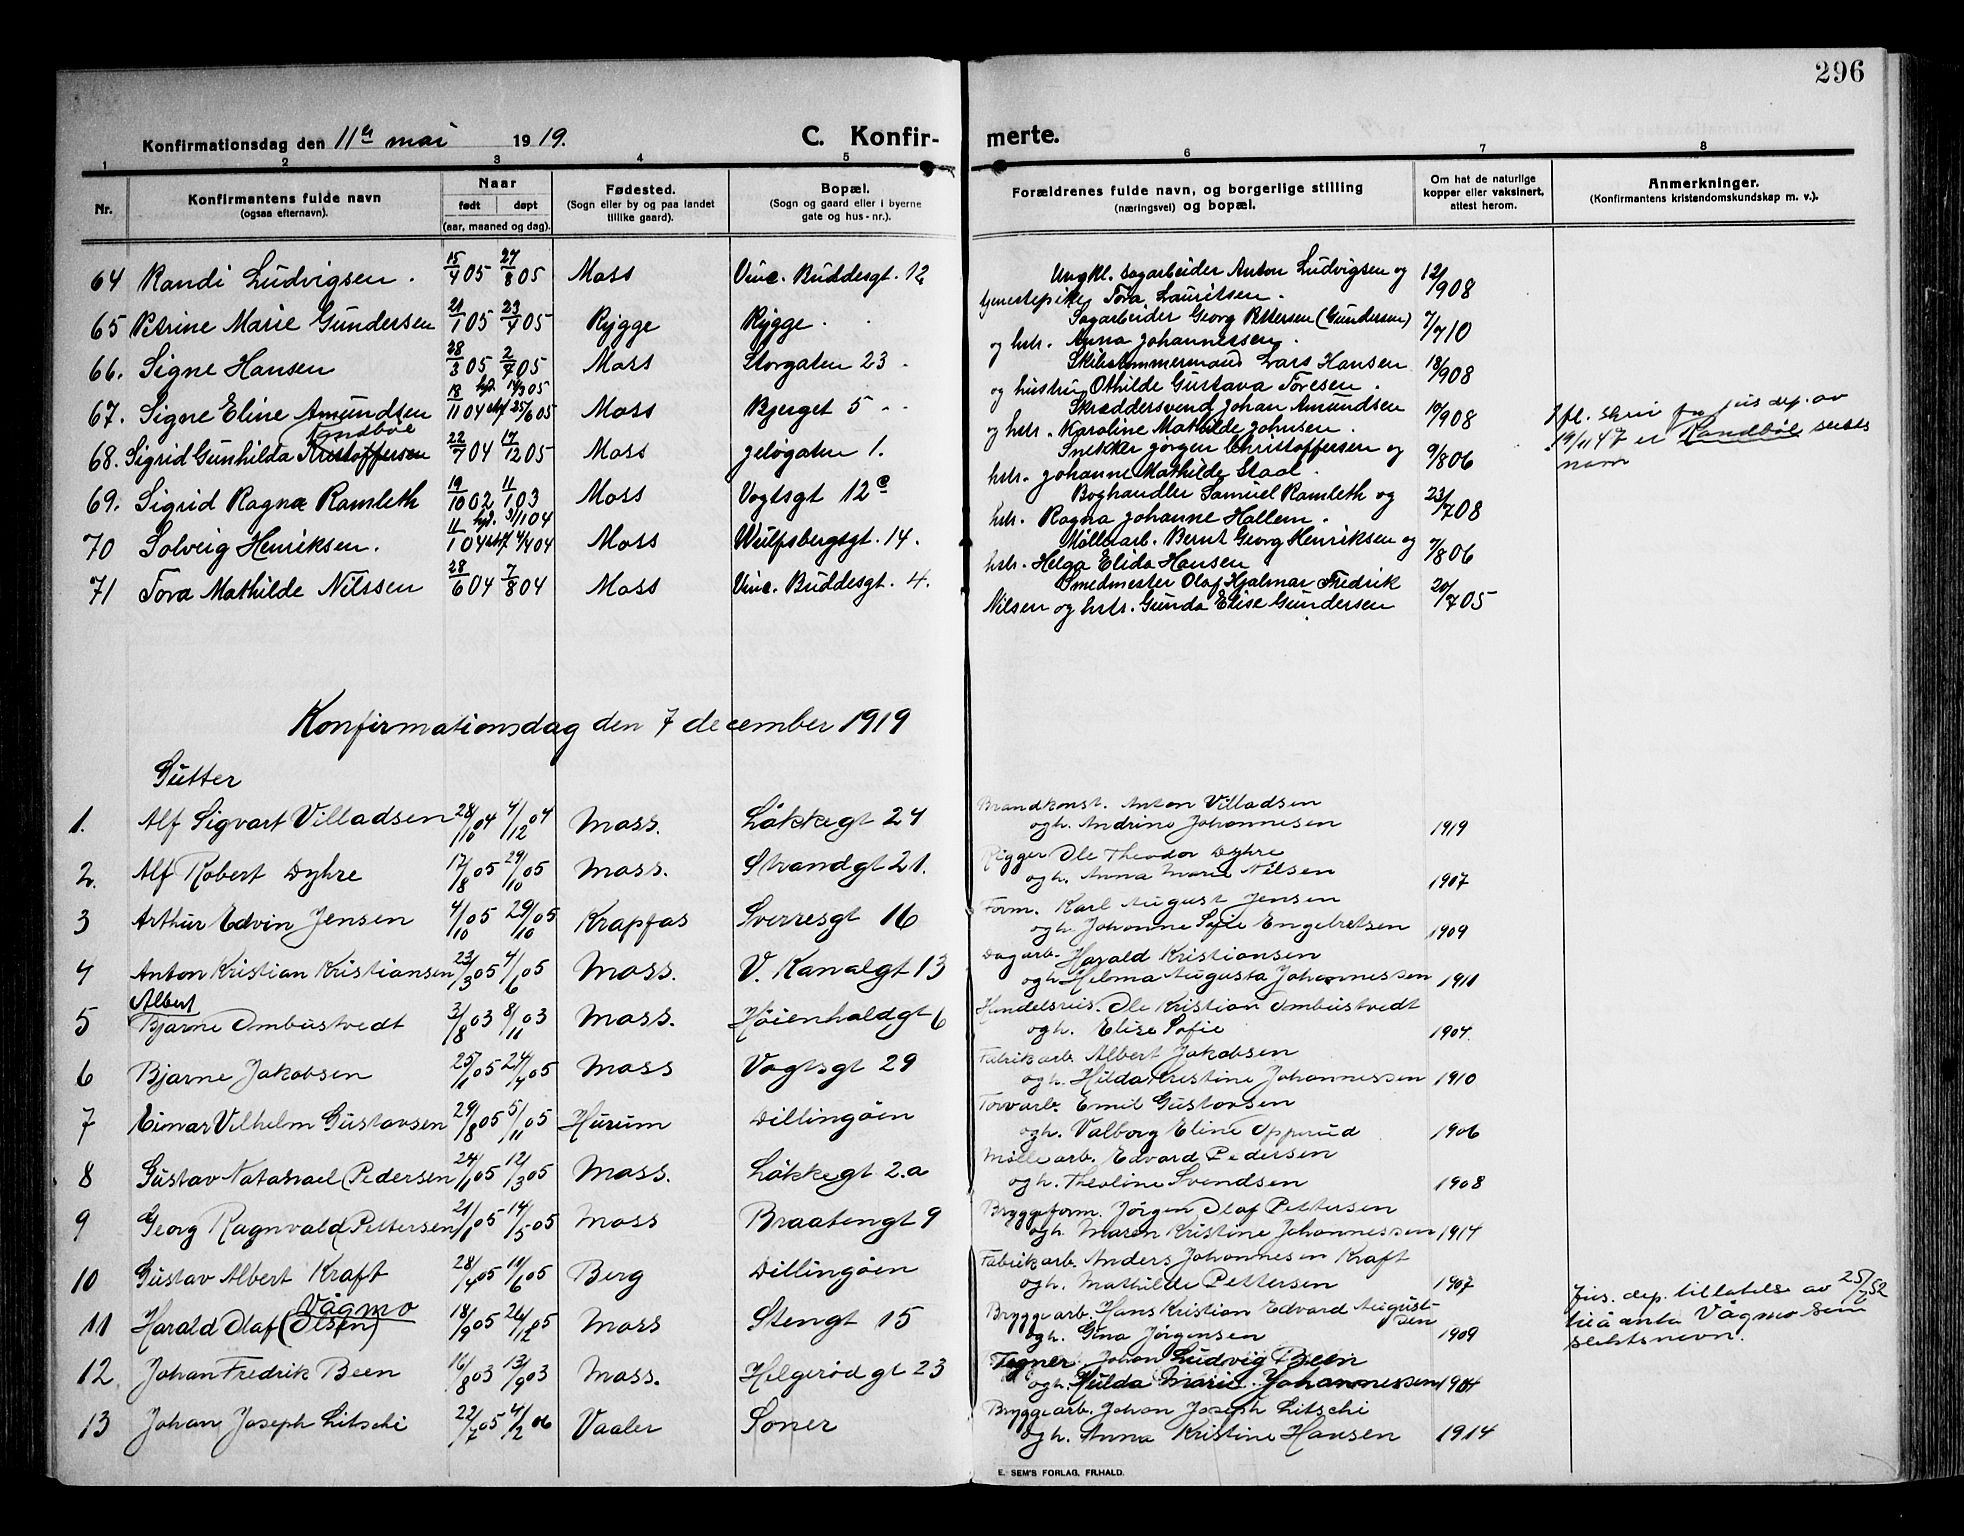 296
Konfirmationsdag den 11te mai 1919. C. Konfirmerte.
1 2 3 4 5 6 7 8
Nr. Konfirmantens fulde navn (ogsaa efternavn). Naar født døpt (aar, maaned og dag). Fødested. (Sogn eller by og paa landet tillike gaard). Bopæl. (Sogn og gaard eller i byerne gate og hus-nr.). Forældrenes fulde navn, og borgerlige stilling (næringsvei) og bopæl. Om hat de naturlige kopper eller vaksinert, attest herom. Anmerkninger. (Konfirmantens kristendomskundskap m. v.).
64 Randi Ludvigsen. 15/4 05 27/8 05 Moss Vinc. Buddesgt. 12 Ungkl. sagarbeider Anton Ludvigsen og tjenestepike Tora Lauritsen. 12/9 08
65 Petrine Marie Gundersen 21/1 05 23/4 05 Rygge Rygge. Sagarbeider Georg Pettersen (Gundersen) og hstr. Anna Johannessen. 7/7 10
66. Signe Hansen 28/3 05 2/7 05 Moss Storgaten 23. Skibstømmermand Lars Hansen og hustru Othilde Gustava Toresen. 18/9 08
67. Signe Eline Amundsen 18/11 04 hjd. 14/3 05 stf 25/6 05 Moss Bjerget 5 Skræddersvend Johan Amundsen og hstr. Karoline Mathilde Johnsen. 10/9 08
68. Sigrid Gunhilda Kristoffersen Randbøe 22/7 04 17/12 05 Moss Jeløgaten 1. Snekker Jørgen Christoffersen og hstr. Johanne Mathilde Staal. 9/8 06 Ifl. skriv fra jus dep. av 19/11 47 er Randbøe slekts navn
69. Sigrid Ragna Ramleth 19/10 02 11/1 03 Moss Vogtsgt 12 c Boghandler Samuel Ramleth og hstr. Ragna Johanne Hallem. 23/7 08
70 Solveig Henriksen. 11/1 04 hjd. 31/1 04 stf 4/4 04 Moss Wulfsbergsgt. 14. Møllearb. Bernt Georg Henriksen og hstr. Helga Elida Hansen 7/8 06
71 Tora Mathilde Nilssen 28/6 04 7/8 04 Moss Vinc. Buddesgt. 4. Smedmester Olaf Hjalmar Fredrik Nilsen og hstr. Gunda Elise Gundersen 20/7 05
Konfirmationsdag den 7 december 1919
Gutter
1. Alf Sigvart Villadsen 28/10 04 4/12 04 Moss. Løkkegt 24 Brandkonst. Anton Villadsen ogh. Andrine Johannesen 1919
2. Alf Robert Dyhre 17/8 05 29/10 05 Moss. Strandgt 21. Rigger Ole Theodor Dyhre ogh. Anna Marie Nilsen 1907
3 Arthur Edvin Jensen 4/10 05 29/10 05 Krapfos Sverresgt 16 Form. Karl August Jensen ogh. Johanne Sofie Engebretsen 1909
4 Anton Kristian Kristiansen 23/3 05 4/6 05 Moss. V. Kanalgt 13 Dagarb. Harald Kristiansen ogh. Helma Augusta Johannessen 1911
5 Albert Bjarne Ombustvedt 3/8 03 8/11 03 Moss. Høienhaldgt 6 Handelsreis. Ole Kristian Ombustvedt ogh. Elise Sofie 1904.
6 Bjarne Jakobsen 25/1 05 24/4 05 Moss Vogtsgt 29 Fabrikarb. Albert Jakobsen ogh. Hilda Kristine Johannessen 1910
7 Eimar Vilhelm Gustavsen 29/8 05 5/11 05 Hurum Dillingøen Torvarb. Emil Gustavsen ogh. Valborg Eline Opprud 1906
8 Gustav Natanael Pedersen 24/1 05 12/3 05 Moss. Løkkegt 2.a Møllearb. Edvard Pedersen ogh. Theoline Svendsen 1908
9 Georg Ragnvald Pettersen 21/1 05 14/5 05 Moss Braatengt 9 Bryggeform. Jørgen Olaf Pettersen ogh. Maren Kristine Johannessen 1914
10 Gustav Albert Kraft 28/4 05 11/6 05 Berg Dillingøen Fabrikarb. Anders Johannesen Kraft ogh. Mathilde Pettersen 1907
11 Harald Olaf (Olsen) Vågmo 18/9 05 26/12 05 Moss Stengt 15 Bryggearb. Hans Kristian Edvard Augustsen ogh. Gina Jørgensen 1909 Jus. dep. tillatelse av 25/7 52 til å anta Vågmo som slektsnavn.
12. Johan Fredrik Been 16/8 03 13/9 03 Moss. Helgerødgt 23 Tegner. Johan Ludvig Been ogh. Hulda Marie Johannessen 1904
13 Johan Joseph Litschi 22/7 05 4/2 06 Vaaler Soner Bryggearb. Johan Joseph Litschi ogh. Anna Kristine Hansen 1914
E. SEM'S FORLAG, FR.HALD.